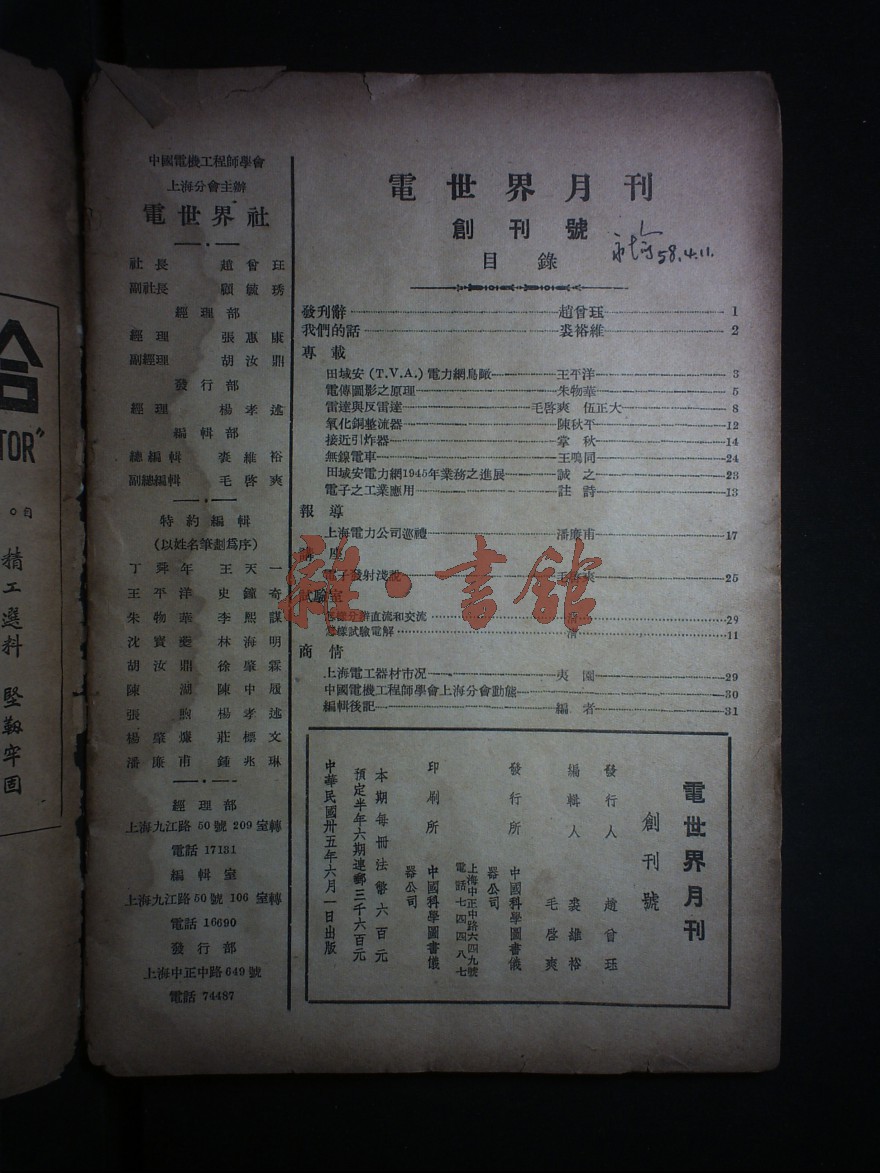 中國電機工程師學會
上海分會主辦
電世界社
社長 趙曾珏
副社長 顧毓琇
經理部
經理 張惠康
副經理 胡汝鼎
發行部
經理 楊孝述
編輯部
總編輯 裘維裕
副總編輯 毛啓爽
特約編輯
(以姓名筆劃爲序)
丁舜年 王天一
王平洋 史鐘奇
朱物華 李熙謀
沈寶夔 林海明
胡汝鼎 徐肇霖
陳湖 陳中熙
張煦 楊孝述
楊肇燫 莊標文
潘廉甫 鍾兆琳
經理部
上海九江路50號209室轉
電話 17131
編輯室
上海九江路50號106室轉
電話 16690
發行部
上海中正中路649號
電話 74487
電世界月刊
創刊號
58.4.11.
目錄
發刊辭 趙曾珏 1
我們的話 裘裕維 2
專載
田城安(T.V.A.)電力網鳥瞰 王平洋 3
電傳圖影之原理 朱物華 5
雷達與反雷達 毛啓爽 伍正大 8
氧化銅整流器 陳秋平 12
接近引炸器 掌秋 14
無線電車 王鳴同 24
田城安電力網1945年業務之進展 誠之 23
電子之工業應用 註詩 13
報導
上海電力公司巡禮 潘廉甫 17
講座
電子發射淺說 毛啓爽 25
試驗室
怎樣分辨直流和交流 29
怎樣試驗電解 11
商情
上海電工器材市况 夷園 29
中國電機工程師學會上海分會動態 30
編輯後記 編者 31
電世界月刊
創刊號
發行人 趙曾珏
編輯人 裘維裕
毛啓爽
發行所 中國科學圖書儀器公司
上海中正中路六四九號
電話七四四八七
印刷所 中國科學圖書儀器公司
本期每冊法幣六百元
預定半年六期連郵三千六百元
中華民國卅五年六月一日出版
TOR"
精工選料 堅韌牢固
雜·書館